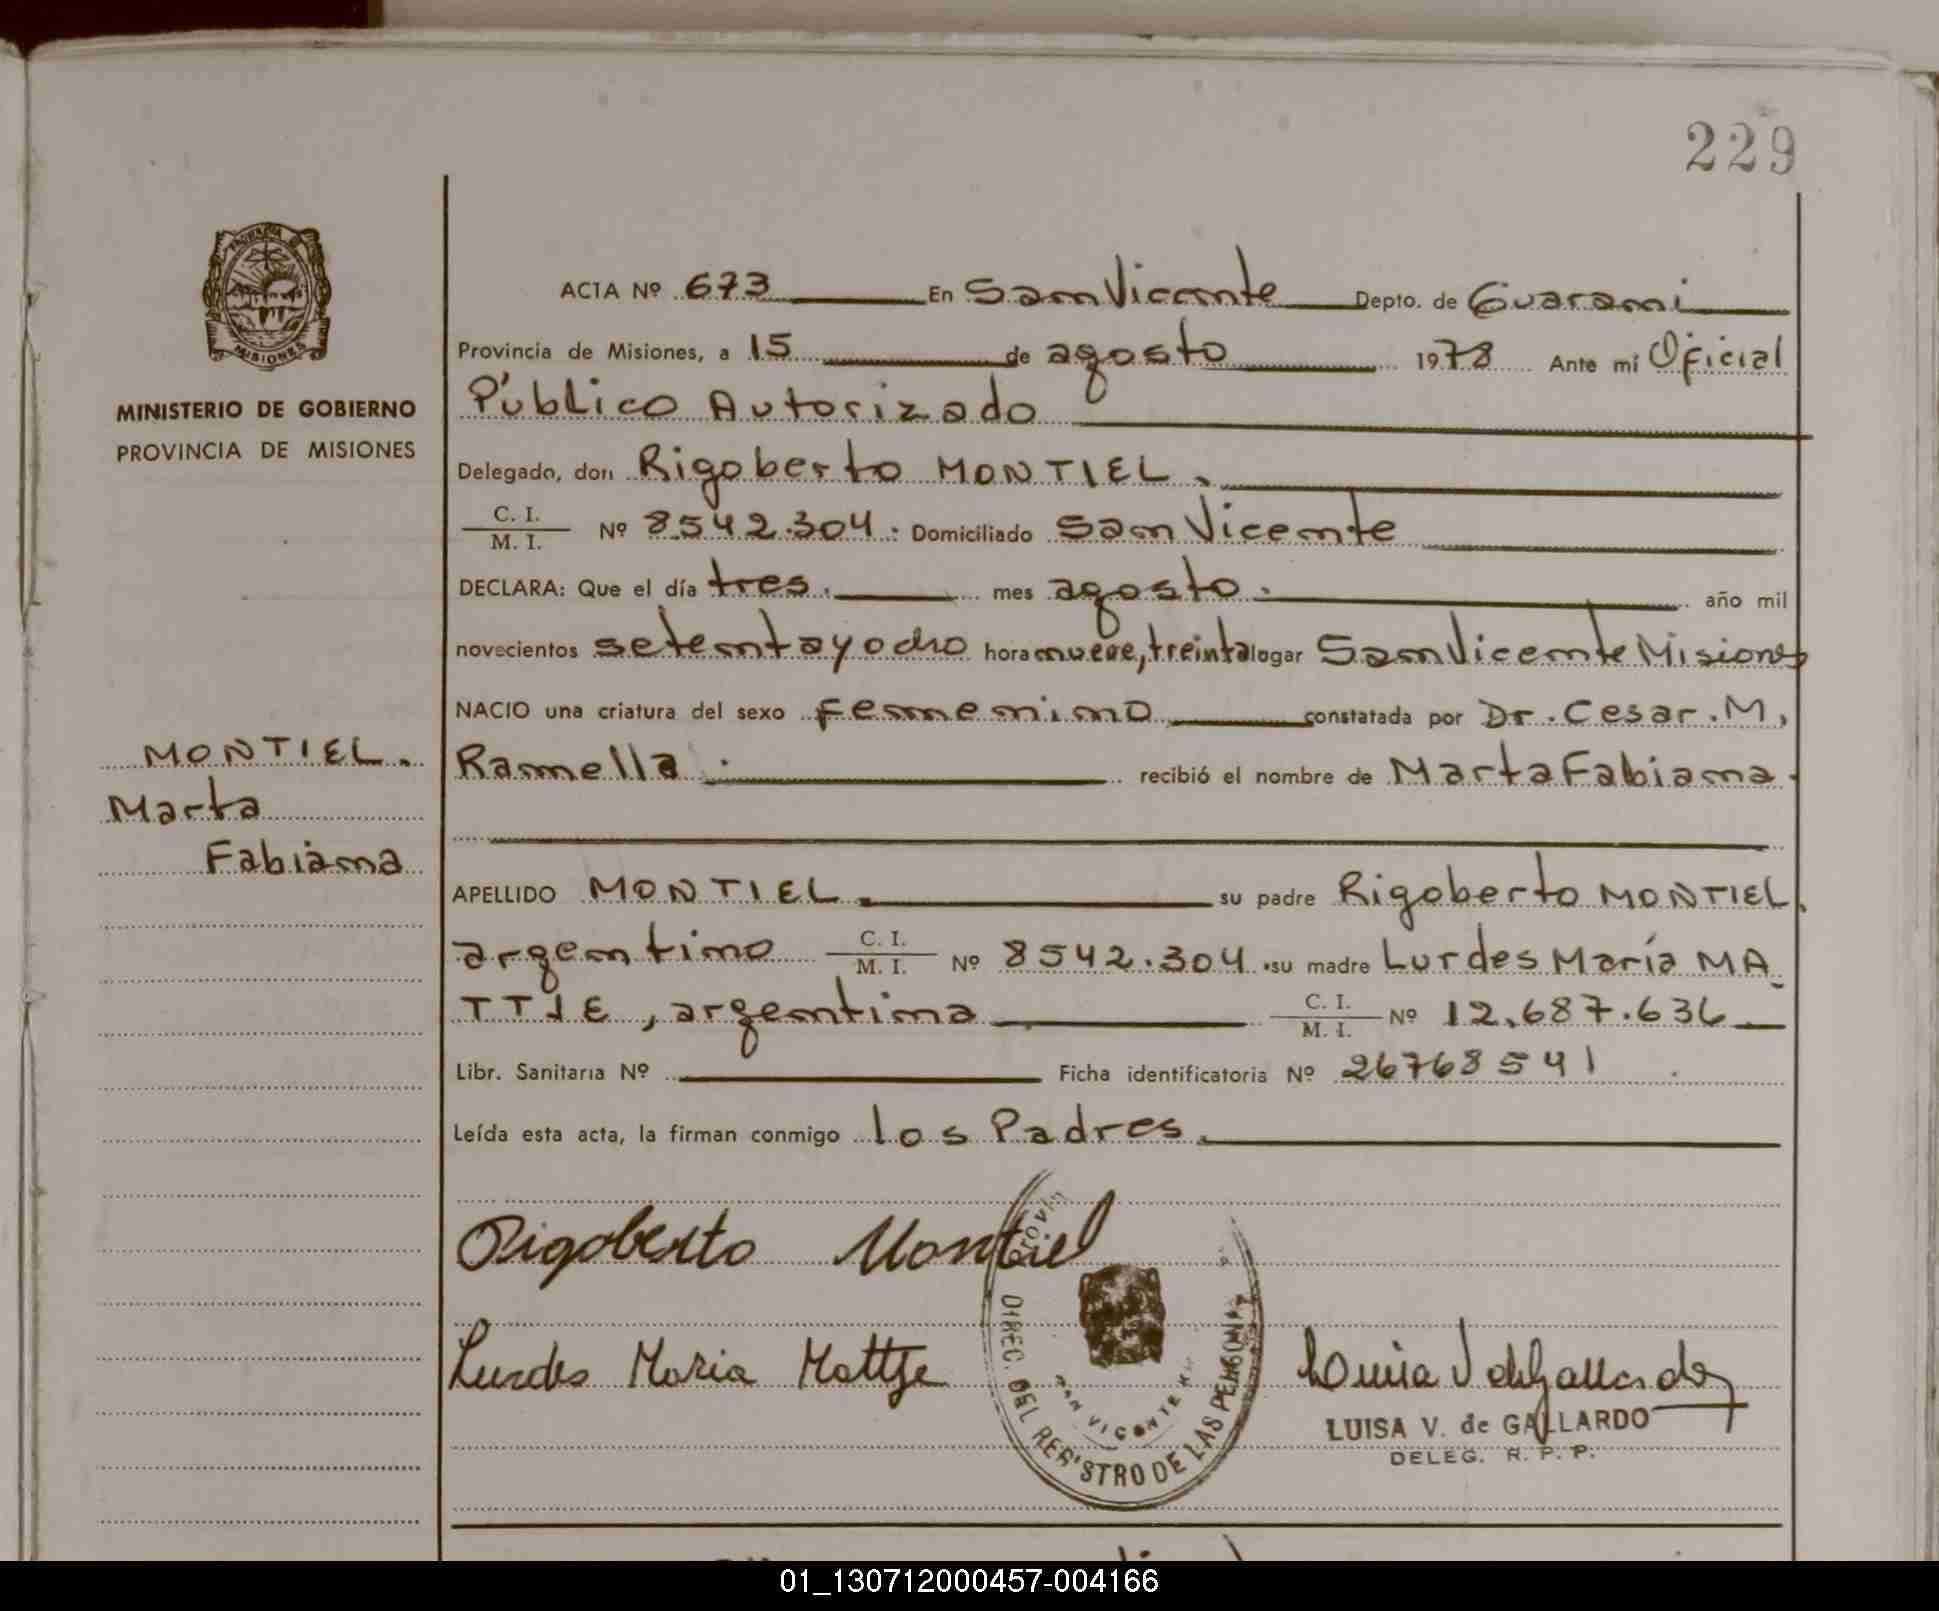 229
PROVINCIA DE
MISIONES
MINISTERIO DE GOBIERNO
PROVINCIA DE MISIONES
ACTA Nº 673 En San Vicente Depto. de Guarani
Provincia de Misiones, a 15 de agosto 1978 Ante mí Oficial
Público Autorizado
Delegado, don Rigoberto MONTIEL.
C. I.
M. I. Nº 8542.304. Domiciliado San Vicente
DECLARA: Que el día tres. mes agosto. año mil
novecientos setenta y ocho hora nueve, treinta lugar San Vicente Misiones
NACIO una criatura del sexo femenino constatada por Dr. Cesar. M,
Ramella. recibió el nombre de Marta Fabiana.
MONTIEL.
Marta
Fabiana
APELLIDO MONTIEL. su padre Rigoberto MONTIEL.
argentino C. I.
M. I. Nº 8542.304. su madre Lurdes María MA
TTJE, argentina C. I.
M. I. Nº 12.687.636
Libr. Sanitaria Nº Ficha identificatoria Nº 26768541
Leída esta acta, la firman conmigo los Padres.
Rigoberto Montiel
Lurdes Maria Mattje
DIREC. DEL REGISTRO DE LAS PERSONAS
SAN VICENTE
LUISA V. de GALLARDO
DELEG. R. P. P.
01_130712000457-004166